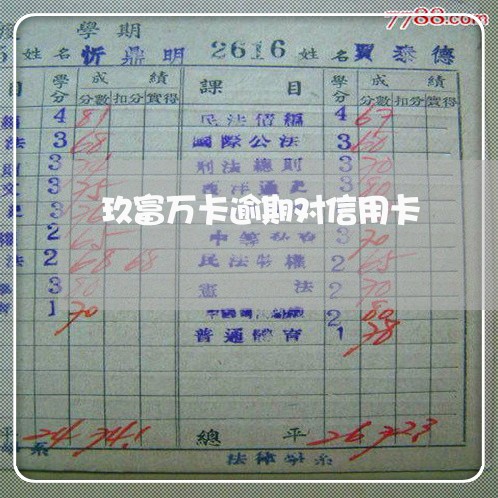 7788.com
學期
姓名 忻鼎明 2616 姓名 賈泰德
目 學分 成績 課目 學分 成績
分數 扣分 實得 分數 扣分 實得
4 81 民法債編 4 67
法 3 68 國際公法 3 60
3 刑法總則 3 70
3 75 西洋通史 3 80
玖富万卡逾期对信用卡
2 65 3 70
法 2 68 68 民法物權 2 65
3 80 憲法 2 70
1 70 2 80
普通體育 1 78
平 24 74.1 總平 26 72.3
法律學系